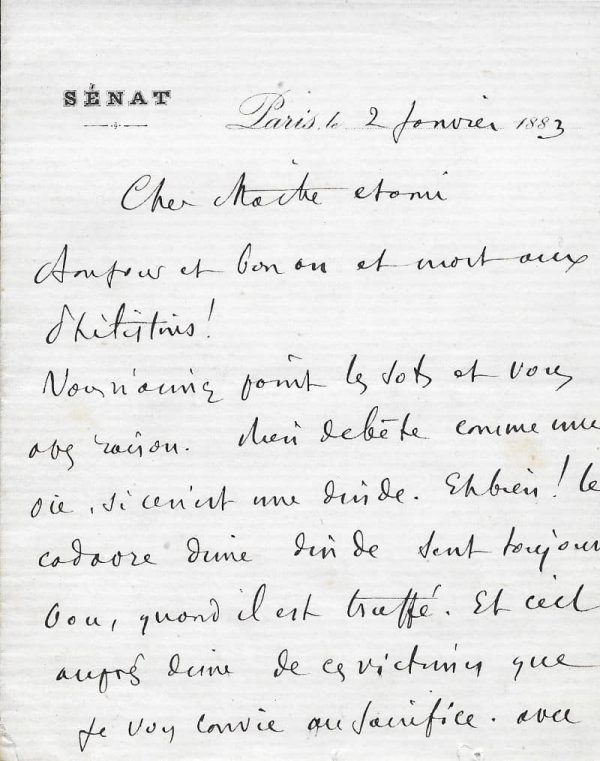 SÉNAT
Paris, le 2 Janvier 1883
Cher Maître et ami
Bonjour et bon an et mort aux
Philistins!
Vous n'aimez point les sots et vous
avez raison. Rien de bête comme une
oie, si ce n'est une dinde. Eh bien! le
cadavre d'une dinde sent toujours
bon, quand il est truffé. Et c'est
auprès d'une de ces victimes que
je vous convie au sacrifice. avec